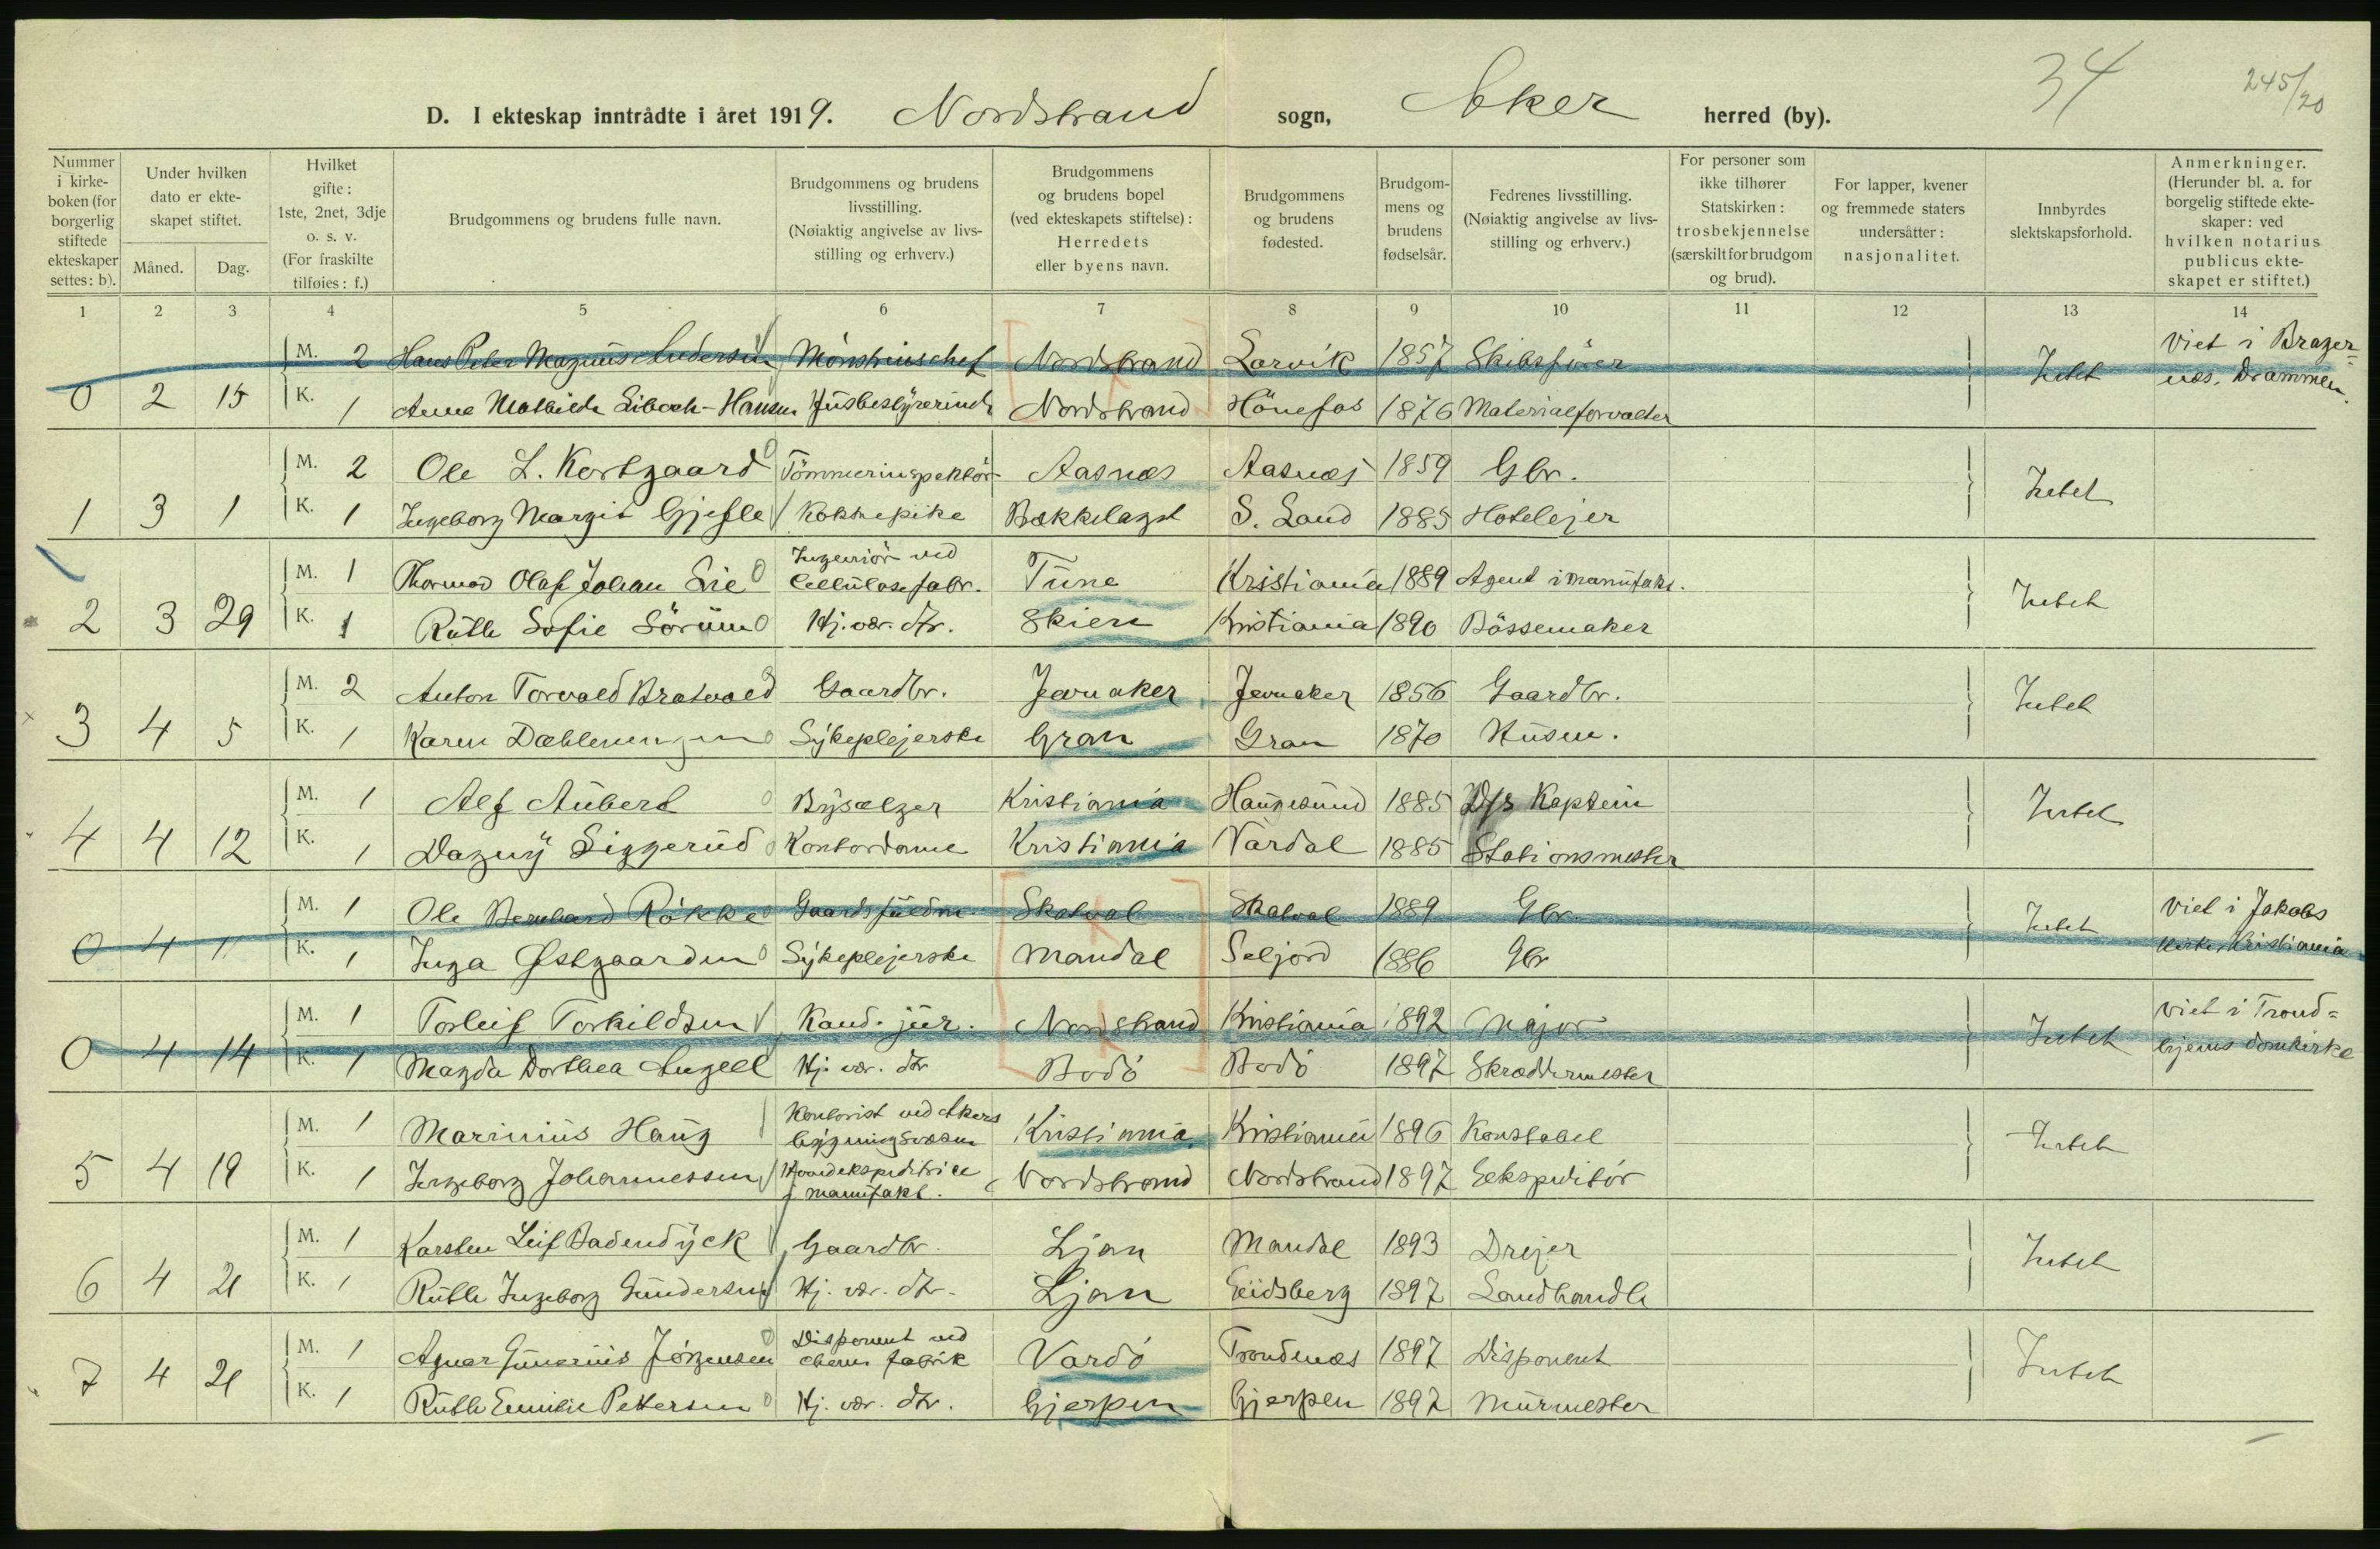 34
245/20
D. I ekteskap inntrådte i året 1919. Nordstrand sogn, Aker herred (by).
Nummer i kirkeboken (for borgerlig stiftede ekteskaper settes: b).
Under hvilken dato er ekteskapet stiftet.
Måned. Dag.
Hvilket gifte: 1ste, 2net, 3dje o. s. v. (For fraskilte tilføies: f.)
Brudgommens og brudens fulle navn.
Brudgommens og brudens livsstilling. (Nøiaktig angivelse av livsstilling og erhverv.)
Brudgommens og brudens bopel (ved ekteskapets stiftelse): Herredets eller byens navn.
Brudgommens og brudens fødested.
Brudgommens og brudens fødselsår.
Fedrenes livsstilling. (Nøiaktig angivelse av livsstilling og erhverv.)
For personer som ikke tilhører Statskirken: trosbekjennelse (særskilt for brudgom og brud).
For lapper, kvener og fremmede staters undersåtter: nasjonalitet.
Innbyrdes slektskapsforhold.
Anmerkninger. (Herunder bl. a. for borgelig stiftede ekteskaper: ved hvilken notarius publicus ekteskapet er stiftet.)
1 2 3 4 5 6 7 8 9 10 11 12 13 14
M. 2 Hans Peter Magnus Andersen Mönstrinschef Nordstrand Larvik 1857 Skibsförer Intet Viet i Bragernæs, Drammen.
0 2 15 K. 1 Anna Mathilde Liboch-Hansen Husbestyrerinde Nordstrand Hönefos 1876 Materialforvalter
M. 2 Ole L. Kortgaard Tömmerinspektör Aasnæs Aasnæs 1859 Gbr. Intet
1 3 1 K. 1 Ingeborg Margit Gjefle Kokkepike Bækkelaget S. Land 1885 Hotelejer
M. 1 Thormod Olaf Johan Lie Ingeniör ved Cellulosefabr. Tune Kristiania 1889 Agent i manufakt. Intet
2 3 29 K. 1 Ruth Sofie Sörum Hj. vær. dtr. Skien Kristiania 1890 Bössemaker
M. 2 Anton Torvald Bratvold Gaardbr. Jevnaker Jevnaker 1856 Gaardbr. Intet
3 4 5 K. 1 Karen Dæhlenengen Sykeplejerske Gran Gran 1870 Husm.
M. 1 Alf Aubert Bysælger Kristiania Haugesund 1885 D/s Kaptein Intet
4 4 12 K. 1 Dagny Siggerud Kontordame Kristiania Værdal 1885 Stationsmester
M. 1 Ole Bernhard Røkke Gaardsfuldm. Skatval Skatval 1889 Gbr. Intet Viet i Jakobs kirke, Kristiania
0 4 1 K. 1 Inga Østgaarden Sykeplejerske Mandal Seljord 1886 Gbr
M. 1 Torleif Torkildsen Kand. jur. Nordstrand Kristiania 1892 Major Intet Viet i Trondhjems domkirke
0 4 14 K. 1 Magda Dorthea Angell Hj. vær. dtr Bodö Bodö 1897 Skræddermester
M. 1 Marinius Haug Kontorist ved Akers bygningsvæsen Kristiania Kristiania 1896 Konstabel Intet
5 4 19 K. 1 Ingeborg Johannessen Hovedekspeditrice i manufakt. Nordstrand Nordstrand 1897 Eekspeditör
M. 1 Karsten Leif Badendyck Gaardbr. Ljan Mandal 1893 Drejer Intet
6 4 21 K. 1 Ruth Ingeborg Gundersen Hj. vær. dtr. Ljan Eidsberg 1897 Landhandle
M. 1 Agnar Gunerius Jörgensen Disponent ved chem. fabrik Vardö Trondenæs 1897 Disponent Intet
7 4 21 K. 1 Ruth Emilie Pettersen Hj. vær. dtr. Gjerpen Gjerpen 1897 Murmester